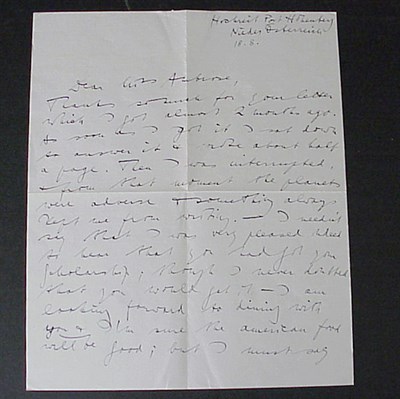 Hochreit Post Hohenberg
Nieder Österreich
18.8.
Dear Miss Ambrose,
Thanks so much for your letter
which I got almost 2 months ago.
As soon as I got it I sat down
to answer it & wrote about half
a page. Then I was interrupted.
From that moment the planets
were adverse & something always
kept me from writing. — I needn't
say that I was very pleased indeed
to hear that you had got your
scholarship; though I never doubted
that you would get it — I am
looking forward to dining with
you & I'm sure the american food
will be good; but I must say